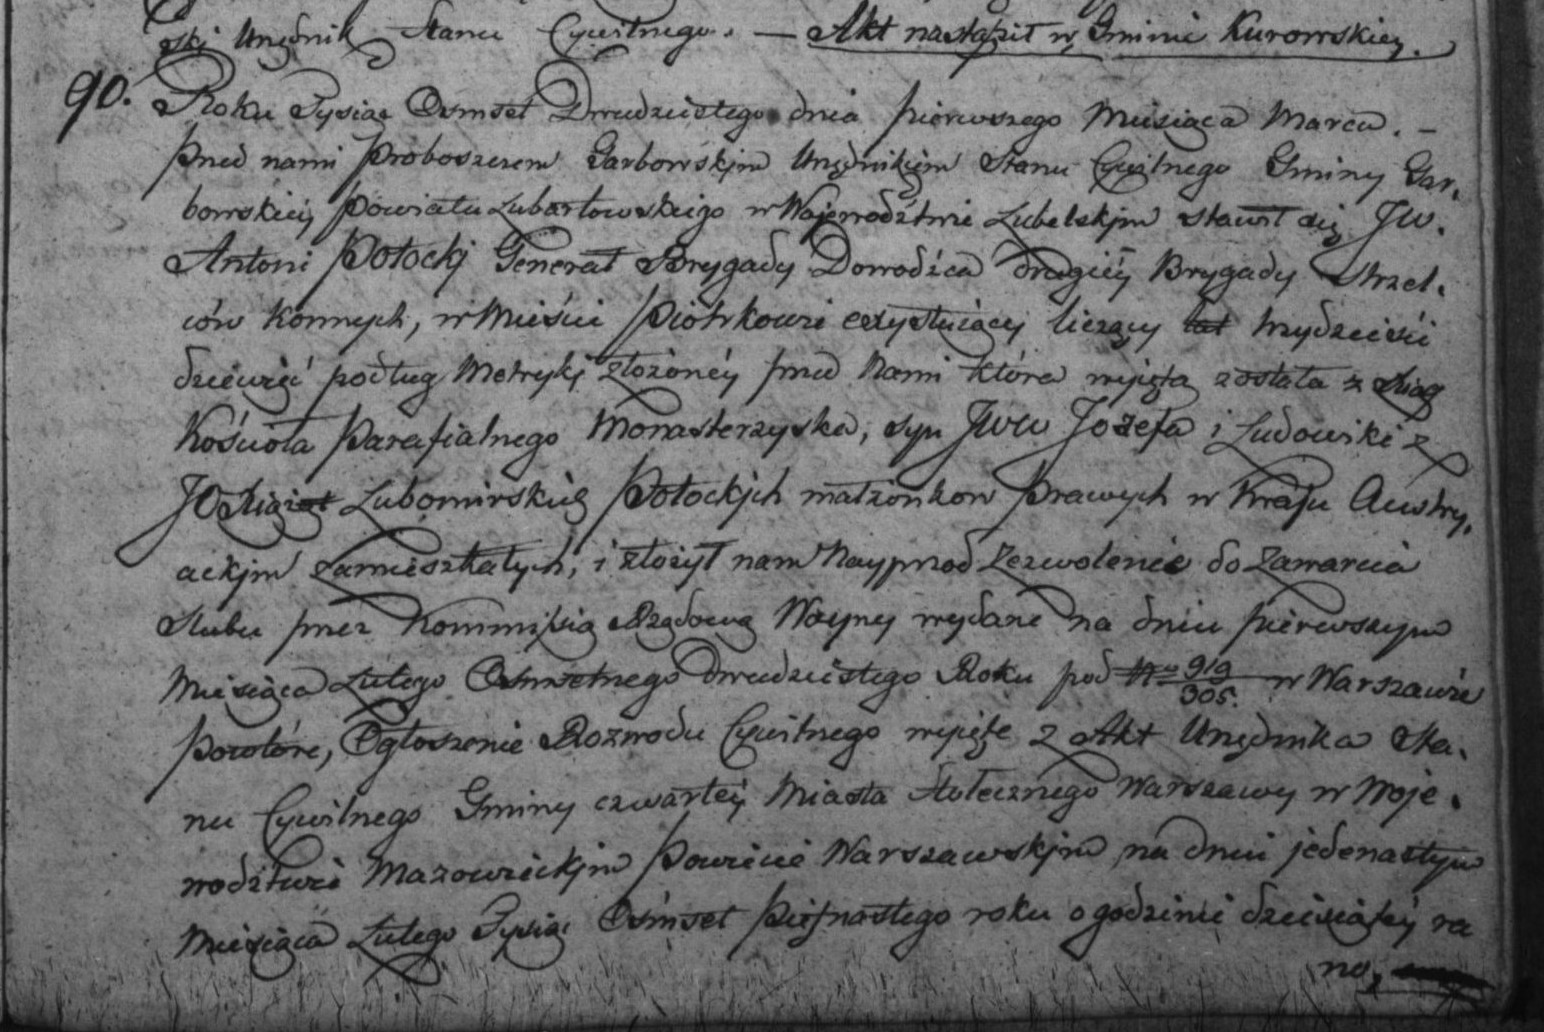 ski Urzędnik Stanu Cywilnego. — Akt nastąpił w Gminie Kurowskiey.
90. Roku Tysiąc Osmset Dwudziestego dnia pierwszego Miesiąca Marca. —
przed nami Proboszczem Garbowskim Urzędnikiem Stanu Cywilnego Gminy Gar,
bowskiey Powiatu Lubartowskiego w Wojewodztwie Lubelskim stawił się JW.
Antoni Potocki Generał Brygady Dowodzca drugiey Brygady Strzel,
ców Konnych, w Mieście Piotrkowie exystuiący liczący lat trzydzieści
dziewięć podług Metryki złożoney przed Nami która wyięta została z Xiąg
Kościoła Parafialnego Monasterzyska, syn JWW Jozefa i Ludowiki z
JO Xiążąt Lubomirskich Potockich małżonkow Prawych w Kraju Austry,
ackim zamieszkałych, i złożył nam Nayprzod Zezwolenie do zawarcia
Slubu przez Kommissią Rządową Woyny wydane na dniu pierwszym
Miesiąca Lutego Osmsetnego dwudziestego Roku pod Nro 919/305. w Warszawie
Powtóre, Ogłoszenie Rozwodu Cywilnego wyięte z Akt Urzędnika Sta,
nu Cywilnego Gminy czwartey Miasta Stołecznego Warszawy w Woje,
wodztwie Mazowieckim Powiecie Warszawskim na dniu jedenastym
Miesiąca Lutego Tysiąc Osmset Piętnastego roku o godzinie dziesiątey ra
no,